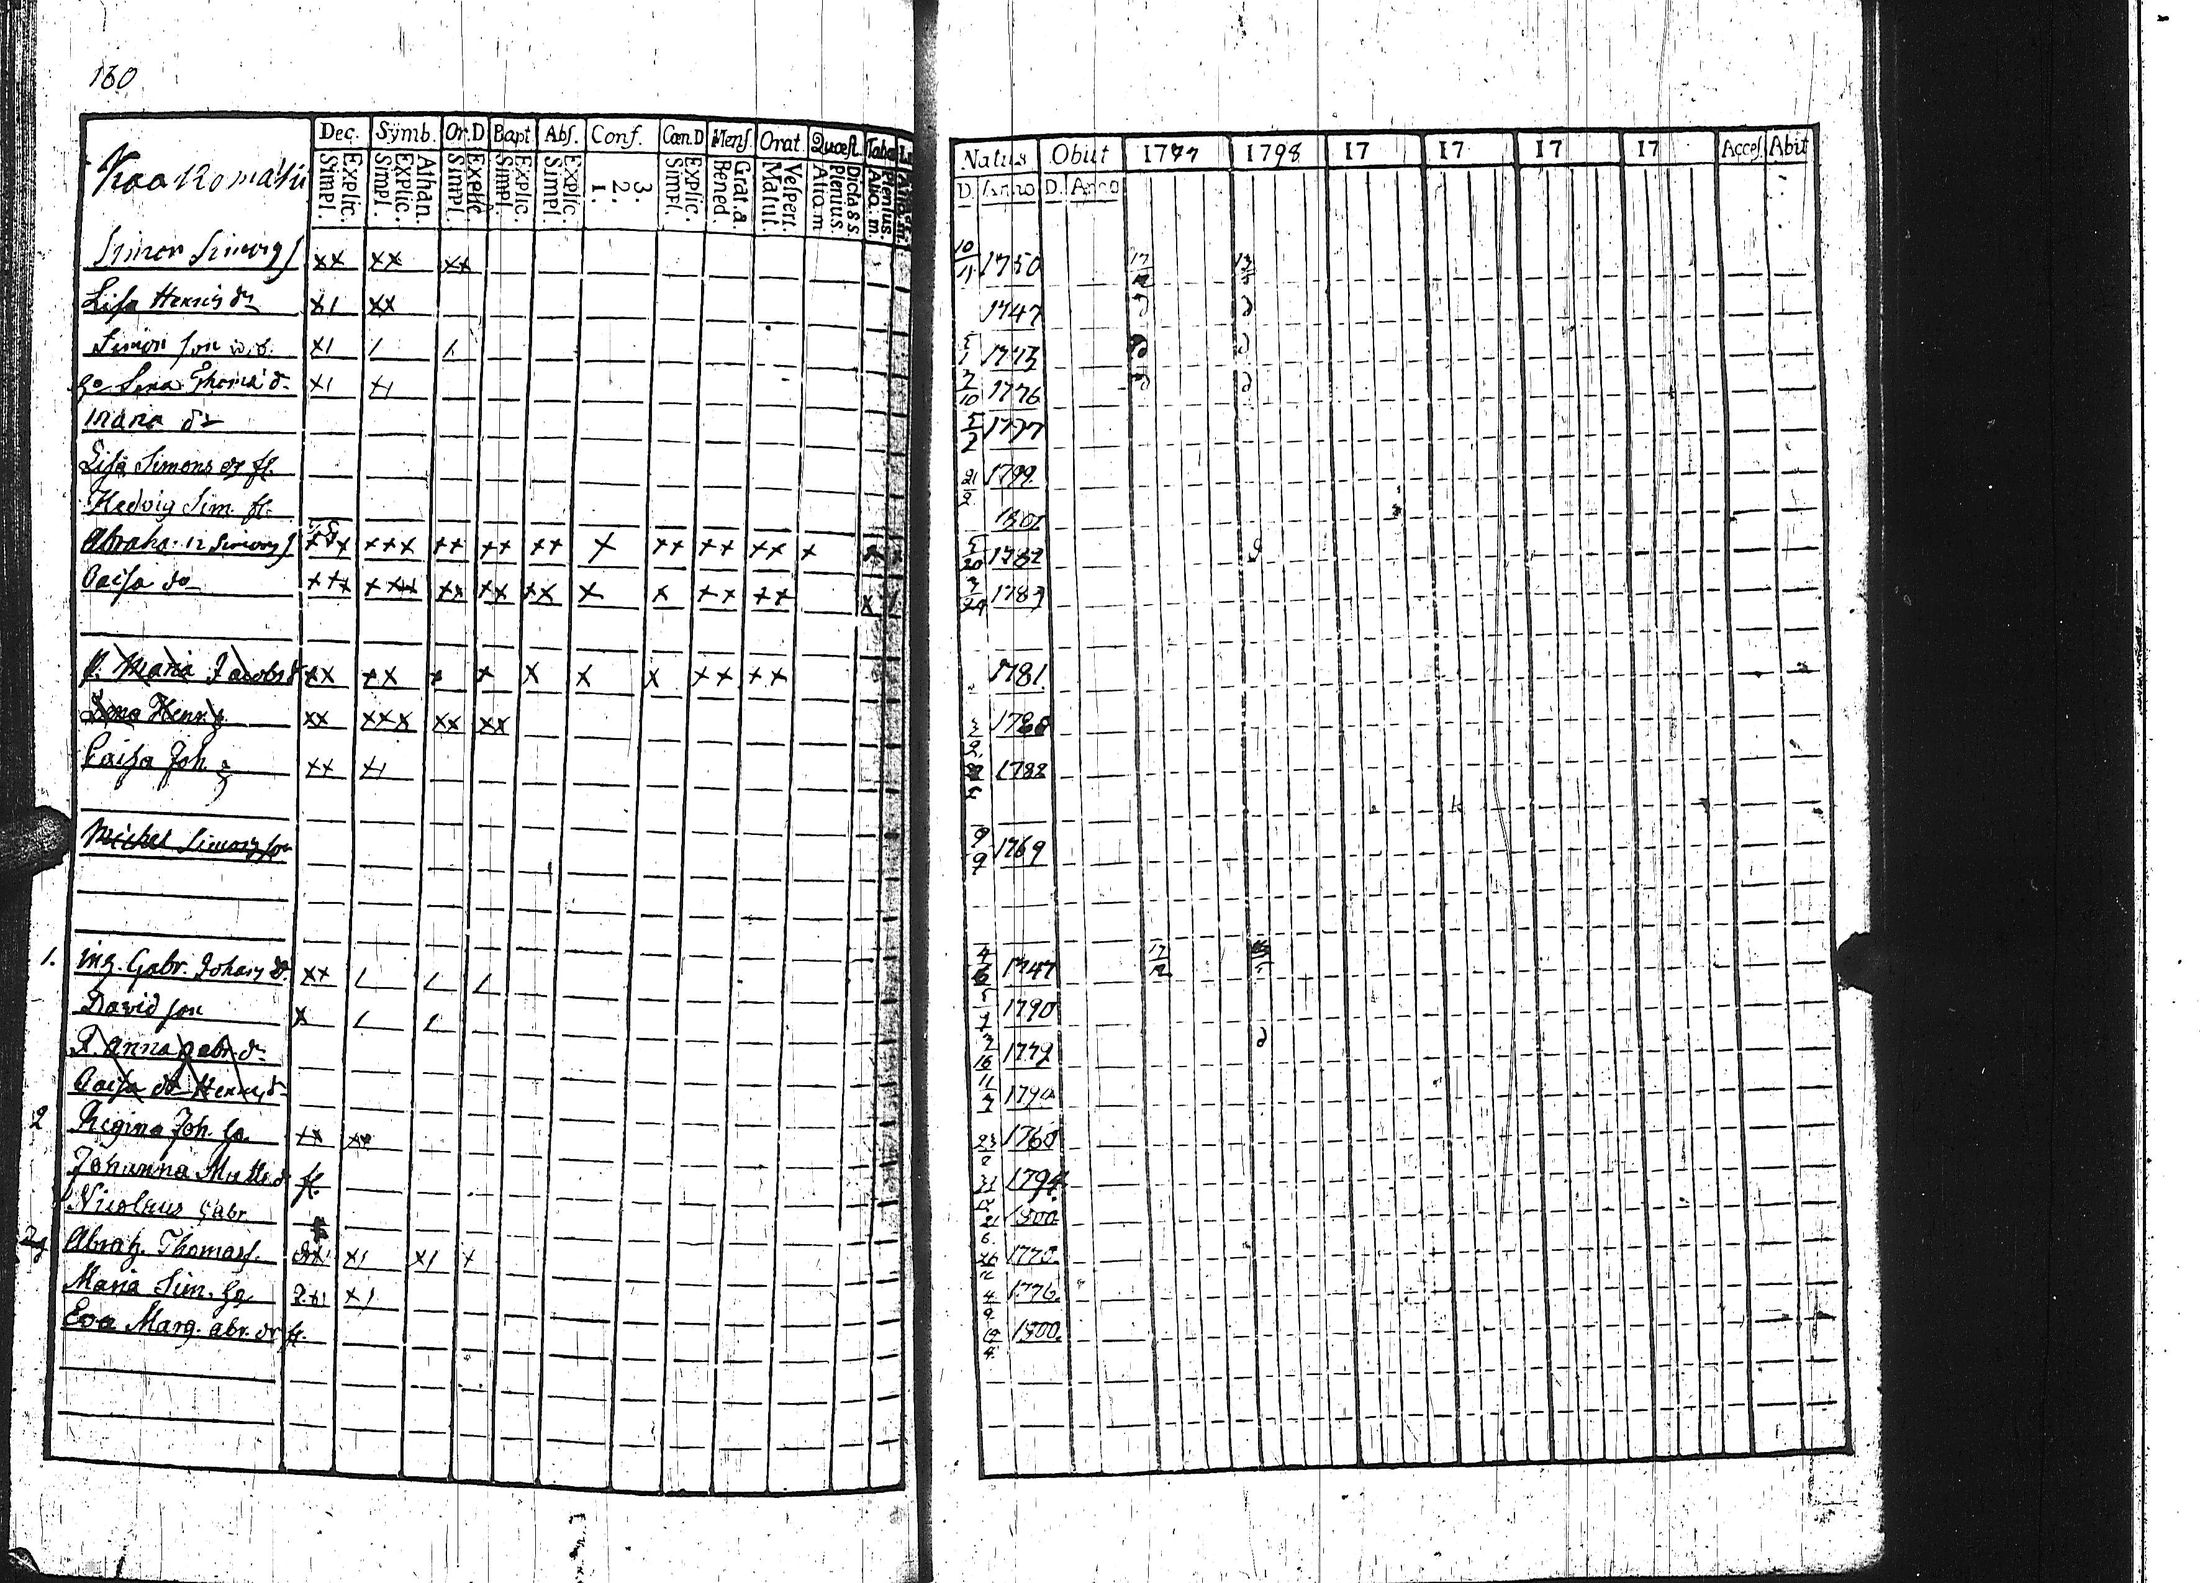 130
Dec. Symb. Or.D Bapt Abs. Conf. Cœn.D Mens. Orat. Quæst.
Explic. Simpl. Athan. Explic. Simpl. Explic. Simpl. Explic. Simpl. Explic. Simpl. 3. 2. 1. Explic. Simpl. Grat.a. Bened. Vespert. Matut. Dicta s s. Plenius. Atiam Plenius. Atia.m.
Natus Obiit 1797 1798 17 17 17 17 Acces. Abit
D. Anno D. Anno
Simon Simons s xx xx xx 10/11 1750 17/12
Lisa Henrics dr x1 xx 1747
Simon son x1 / / 5/1 1773
Lena Thoma d x1 x1 7/10 1776
Maria dr 5/2 1777
Lisa Simons dr fl. 21/2 1799
Hedvig Sim. fl. 1801
Abraha.m Simons s xxx xxx xx xx xx x xx xx xx x 5/20 1782
Caisa do xxx xxx xx xx xx x x xx xx x 3/24 1783
P. Maria Jacobs d xx xx x x x x x xx xx 1781
Henr. xx xxx xx xx 1788
Caisa Joh xx x1 1788
Michel Simonsson 9/9 1769
1. Inq. Gabr. Johans xx / / / 1747 17/12
David son x / / 1790
P. Anna Gabr. d 3/16 1779
Caisa do Henrics d 11/7 1790
2 Regina Joh. xx xx 23/2 1768
Johanna Matts. d fl. 31 1794
Nicolaus Gabr. 21/6 1800
Abrah. Thomass. x1 x1 x 26/12 1775
Maria Sim. x1 x1 4/9 1776.
Eva Marg. abr. dr fl. 1800.